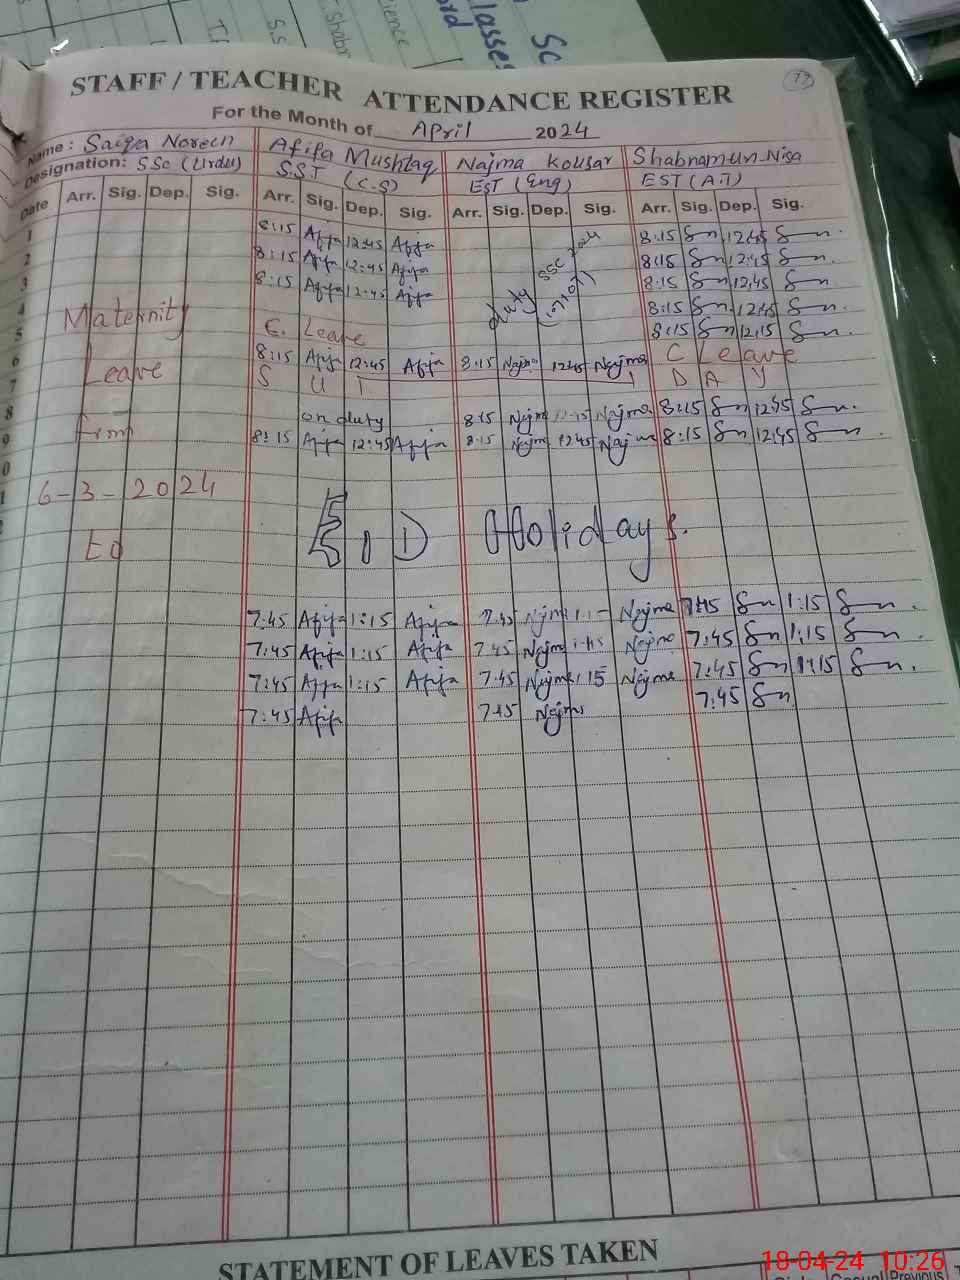 Sc
Classes
Science
T. Shabn
S.S
STAFF / TEACHER ATTENDANCE REGISTER
For the Month of April 2024
Name: Saiqa Noreen Afifa Mushtaq Najma Kousar Shabnamun-Nisa
Designation: SSC (Urdu) S.S.T (C.S) EST (Eng) EST (A.T)
Date Arr. Sig. Dep. Sig. Arr. Sig. Dep. Sig. Arr. Sig. Dep. Sig. Arr. Sig. Dep. Sig.
1 8:15 Afifa 12:45 Afifa 8:15 Sn 12:45 Sn
2 8:15 Afifa 12:45 Afifa duty SSC 2024 8:15 Sn 12:45 Sn
3 8:15 Afifa 12:45 Afifa 8:15 Sn 12:45 Sn
4 Maternity 8:15 Sn 12:45 Sn
5 C. Leave 8:15 Sn 12:15 Sn
6 Leave 8:15 Afifa 12:45 Afifa 8:15 Najma 12:45 Najma C Leave
7 S U T DAY
8 from on duty 8:15 Najma Najma 8:15 Sn 12:45 Sn
9 8:15 Afifa 12:45 Afifa 8:15 Najma 12:45 Najma 8:15 Sn 12:45 Sn
0
1 6-3-2024
2 EID Holidays.
to
7:45 Afifa 1:15 Afifa 7:45 Najma Najma 7:45 Sn 1:15 Sn
7:45 Afifa 1:15 Afifa 7:45 Najma 1:15 Najma 7:45 Sn 1:15 Sn
7:45 Afifa 1:15 Afifa 7:45 Najma 1:15 Najma 7:45 Sn 1:15 Sn
7:45 Afifa 7:45 Najma 7:45 Sn
STATEMENT OF LEAVES TAKEN
18-04-24 10:26
Casual Previous